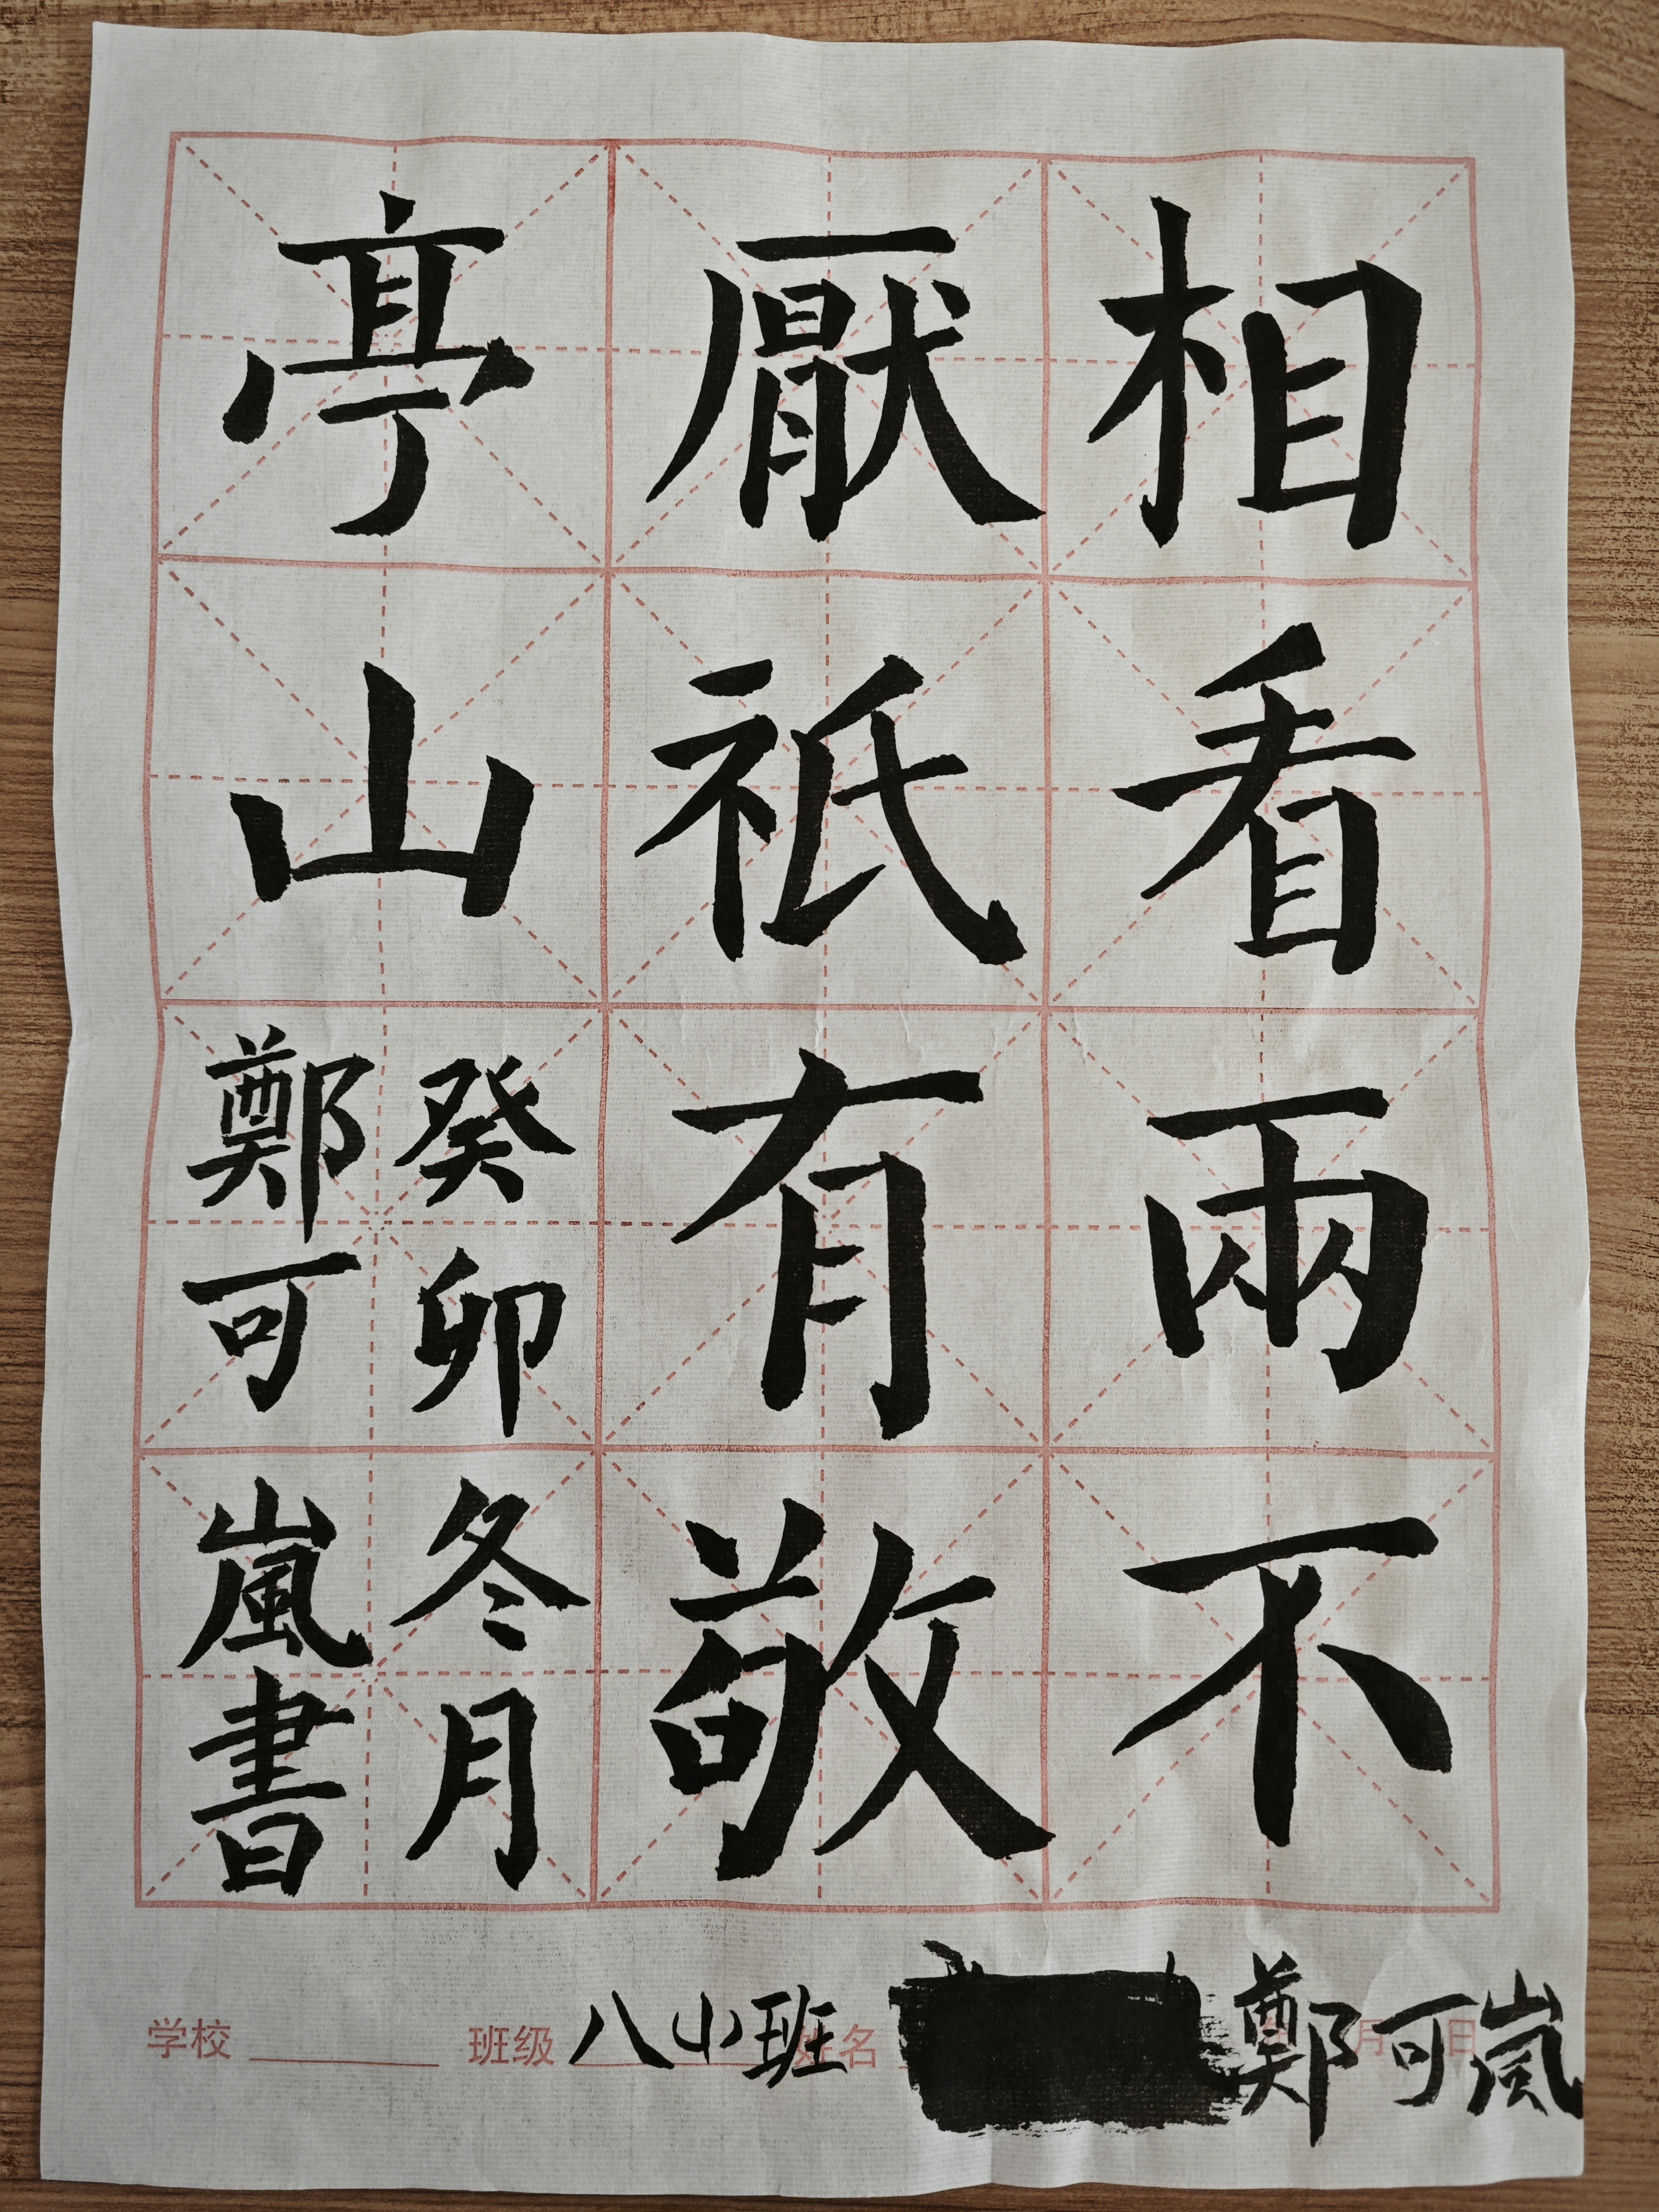 相看兩不
厭祇有敬
亭山
癸卯冬月
鄭可嵐書
学校 班级 八小班 姓名 鄭可嵐 月 日